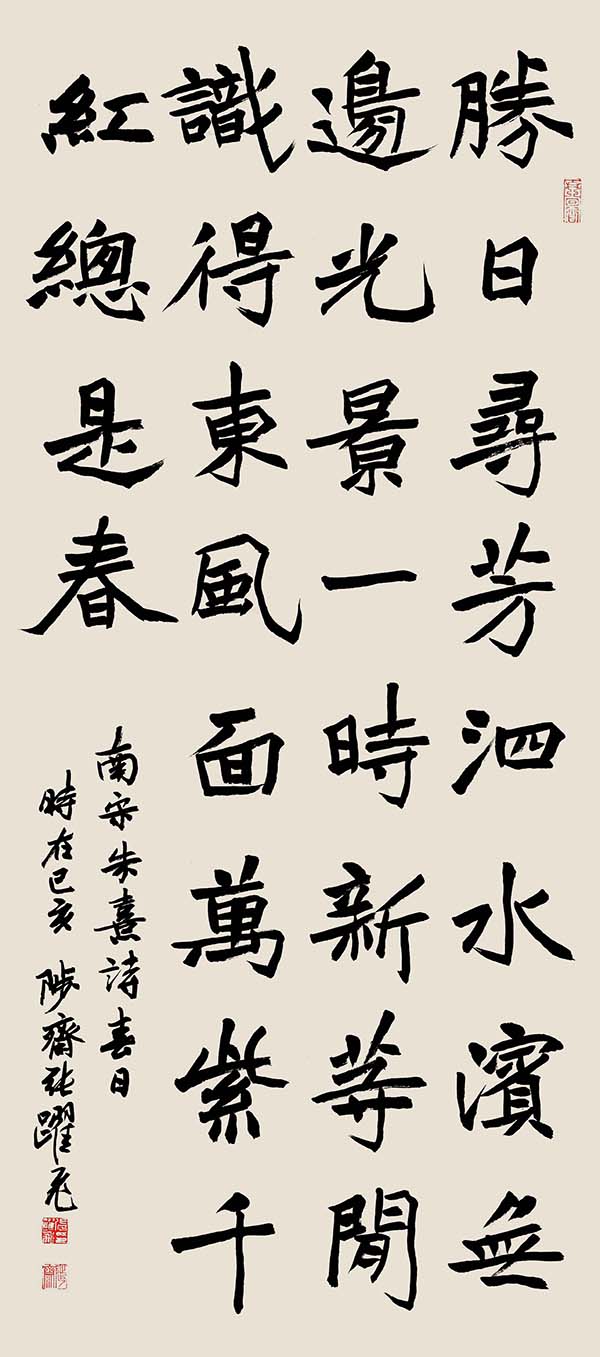 勝日尋芳泗水濱無
邊光景一時新等閒
識得東風面萬紫千
紅總是春
南宋朱熹詩春日
時在己亥 陟齋張躍飛